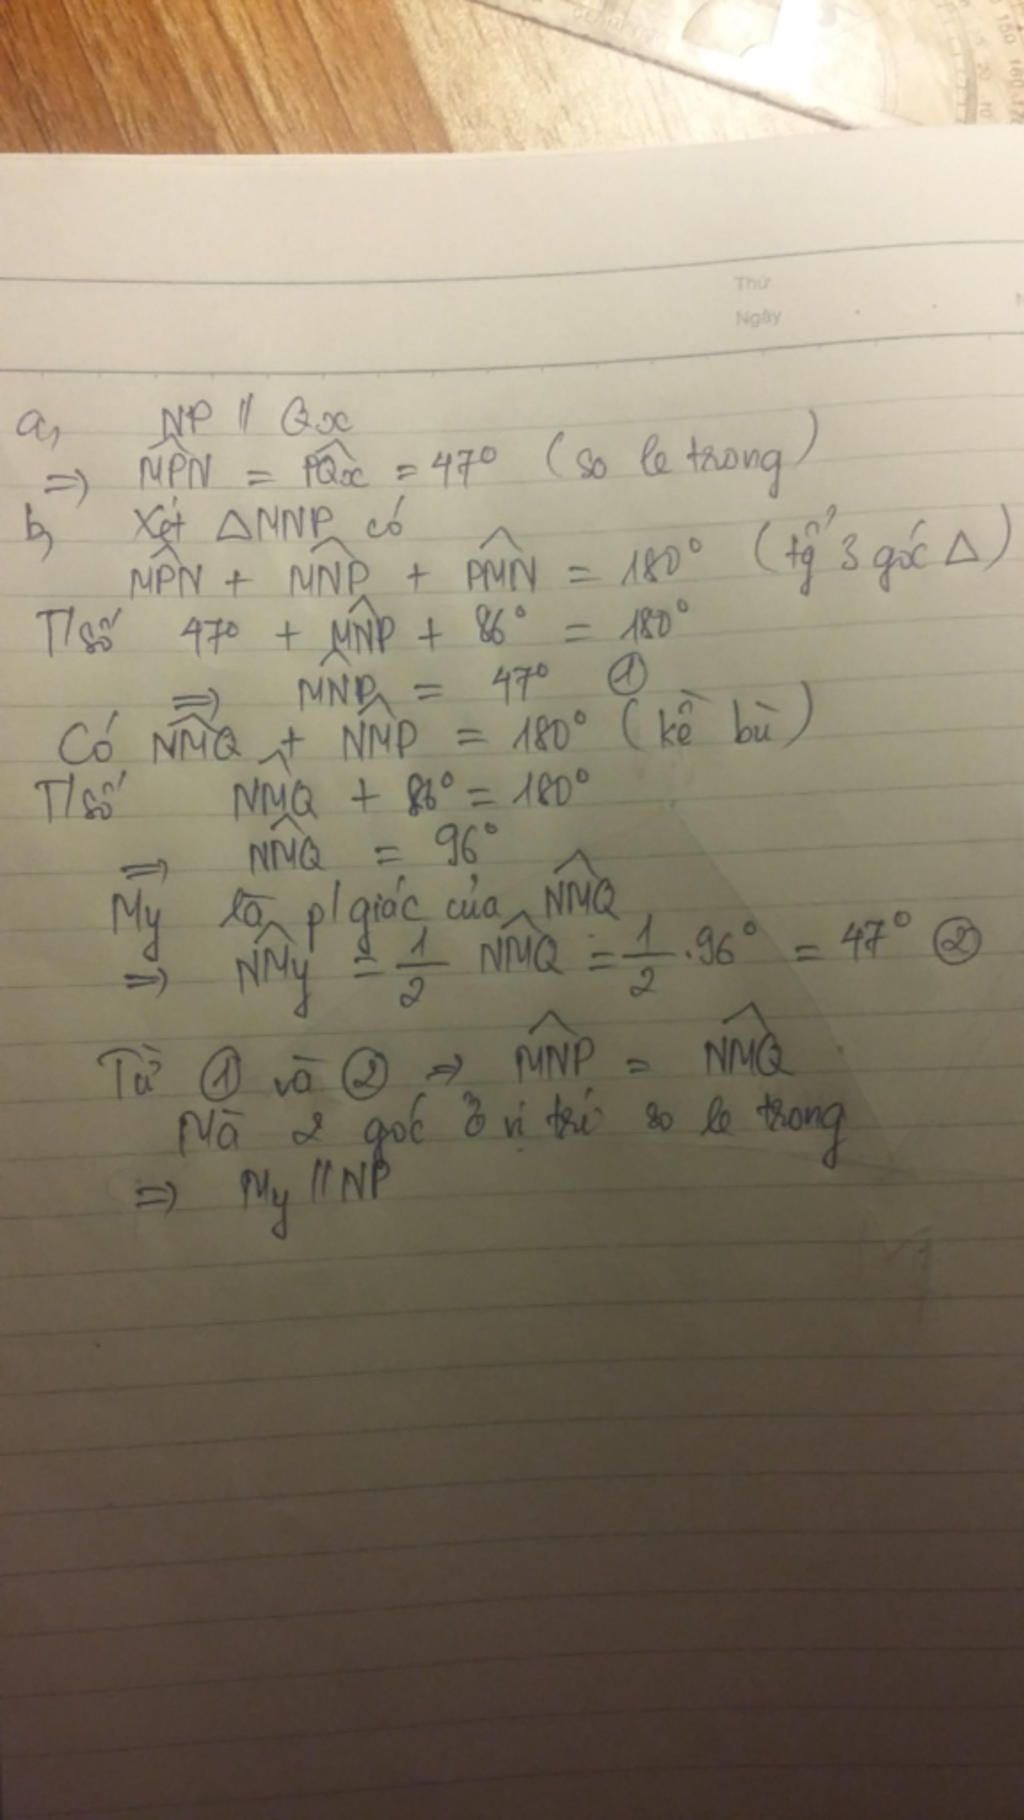 Thứ
Ngày
a, NP // Qx
=> MPN = PQx = 47° (so le trong)
b, Xét △MNP có
MPN + MNP + PMN = 180° (tg̉ 3 góc △)
T/số 47° + MNP + 86° = 180°
=> MNP = 47° ①
Có NMQ + NMP = 180° (kề bù)
T/số NMQ + 86° = 180°
=> NMQ = 96°
My là p/giác của NMQ
=> NMy = 1/2 NMQ = 1/2 . 96° = 47° ②
Từ ① và ② => MNP = NMQ
Mà 2 góc ở vị trí so le trong
=> My // NP